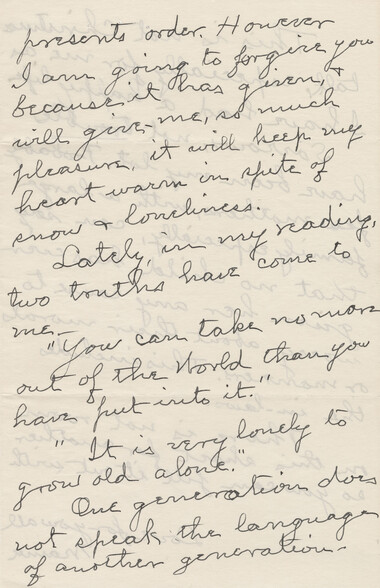 presents order. However
I am going to forgive you
because it has given, &
will give me, so much
pleasure, it will keep my
heart warm in spite of
snow & loneliness.
Lately, in my reading,
two truths have come to
me -
"You can take no more
out of the World than you
have put into it."
" It is very lonely to
grow old alone."
One generation does
not speak the language
of another generation -